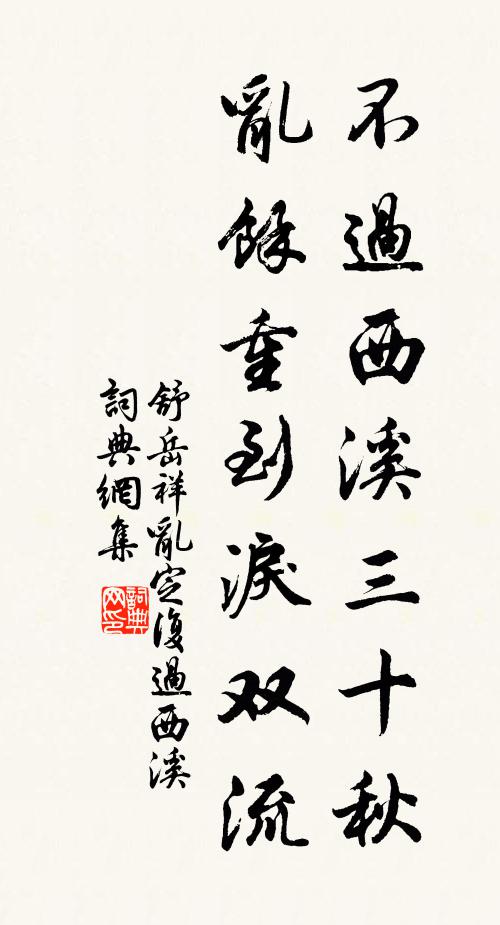 不過西溪三十秋
亂餘重到淚双流
舒岳祥亂定復過西溪
詞典網集
詞典网印